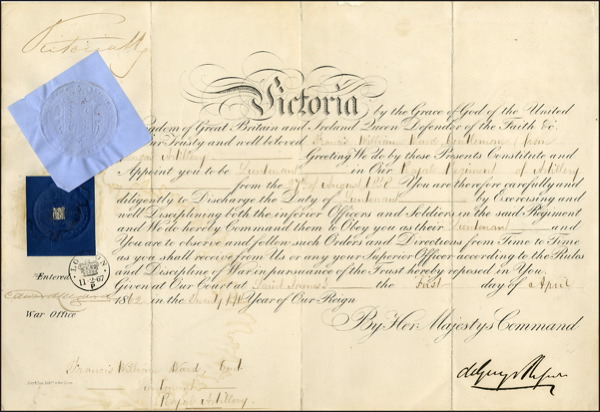 Victoria R
Victoria by the Grace of God of the United
Kingdom of Great Britain and Ireland Queen Defender of the Faith &c.
Our Trusty and well beloved Francis William Ward Gentleman, from
Bengal Artillery Greeting We do by these Presents Constitute and
Appoint you to be Lieutenant in Our Royal Regiment of Artillery
from the of August 1858 You are therefore carefully and
diligently to Discharge the Duty of Lieutenant by Exercising and
well Disciplining both the inferior Officers and Soldiers in the said Regiment
and We do hereby Command them to Obey you as their Lieutenant and
You are to observe and follow such Orders and Directions from Time to Time
as you shall receive from Us or any your Superior Officer according to the Rules
and Discipline of War in pursuance of the Trust hereby reposed in You
Given at Our Court at Saint James's the First day of April
1862 in the Twenty fifth Year of Our Reign
By Her Majestys Command
Entered
War Office
LONDON
11 2 67
P
Francis William Ward, Gent
Lieutenant
Royal Artillery
de Grey & Ripon